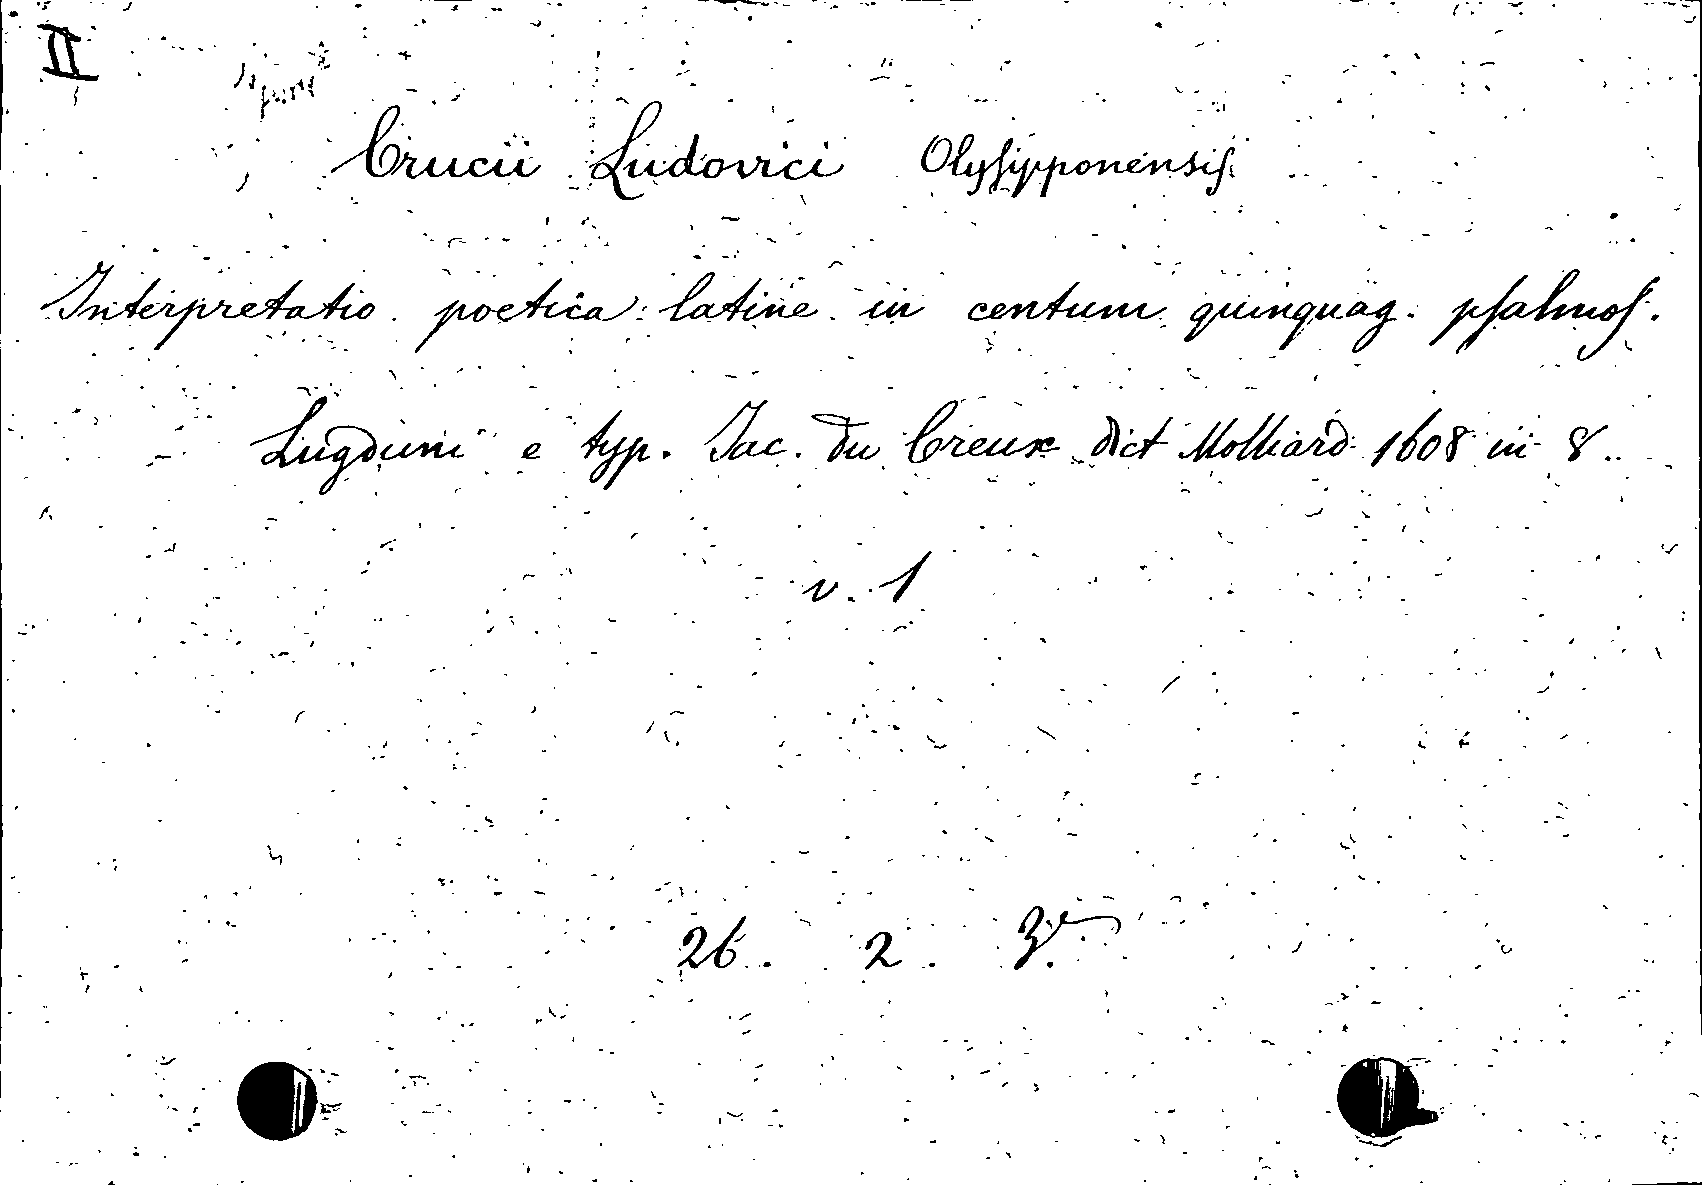 II
Crucii Ludovici Olysipponensis
Interpretatio poetica latine in centum quinquag. psalmos.
Lugduni e typ. Jac. du Creux dict Molliard 1608 in 8.
v. 1
26. 2. 3.